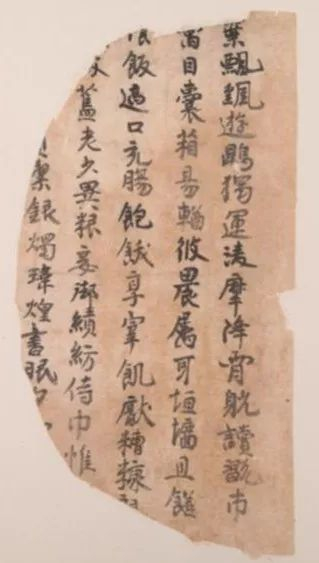 葉飄颻遊鵾獨運淩摩降霄躭讀翫市
目囊葙易輶攸畏属耳垣墻且饍
飯適口充腸飽飫享宰飢猒糟糠
舊老少異粮妾御績紡侍巾帷
潔銀燭煒煌晝眠夕